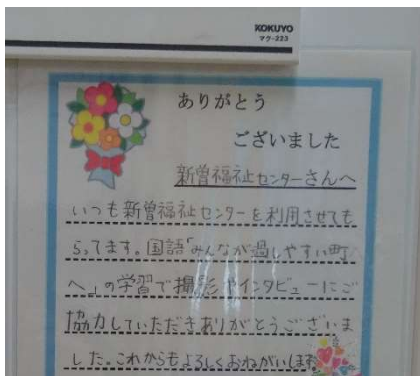 KOKUYO
マク-223
ありがとう
ございました
新曽福祉センターさんへ
いつも新曽福祉センターを利用させても
らってます。国語「みんなが過しやすい町
へ」の学習で撮影やインタビューにご
協力していただきありがとうございま
した。これからもよろしくおねがいします。